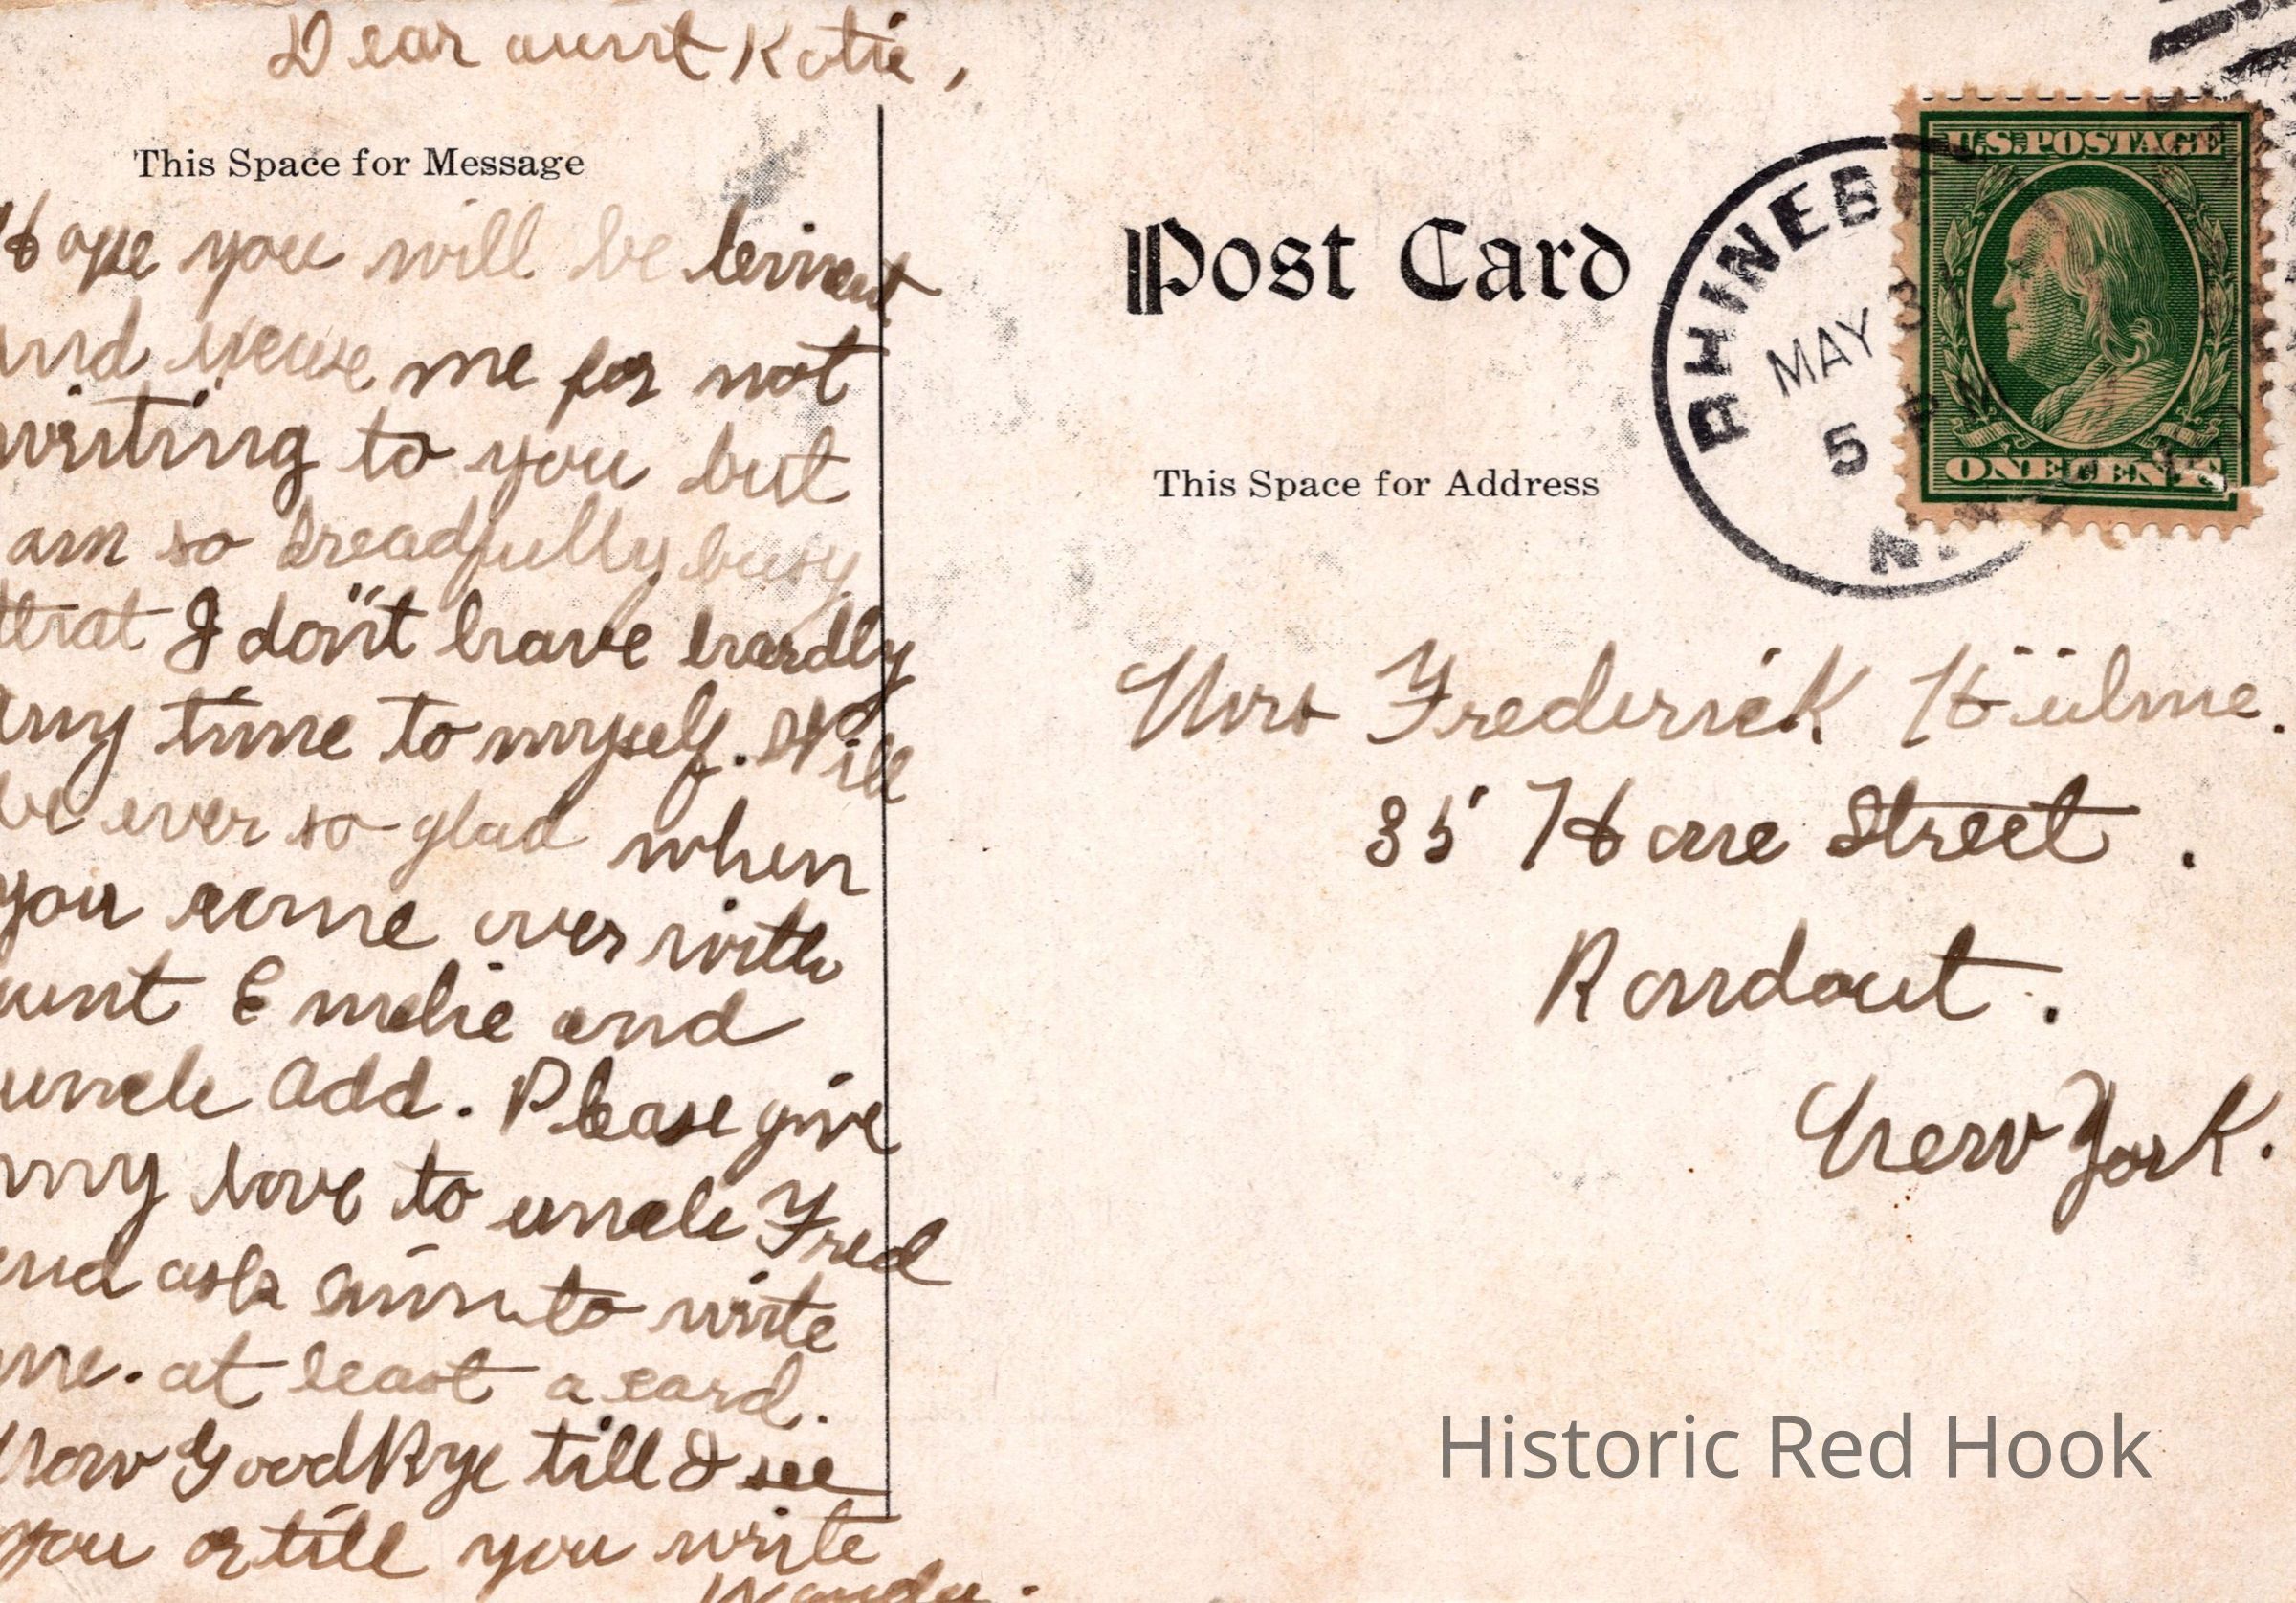 Dear aunt Katie,
This Space for Message
Hope you will be lenient
and excuse me for not
writing to you but
am so dreadfully busy
that I don"t have hardly
any time to myself. Will
be ever so glad when
you come over with
aunt Emelie and
uncle Add. Please give
my love to uncle Fred
and ask him to write
me. at least a card.
Now GoodBye till I see
you or till you write
Wanda.
Post Card
This Space for Address
RHINEB
MAY 3
5 PM
N.
U.S. POSTAGE
ONE CENT
Mrs Frederick Hülme.
35 Hone Street.
Rondout.
New York.
Historic Red Hook